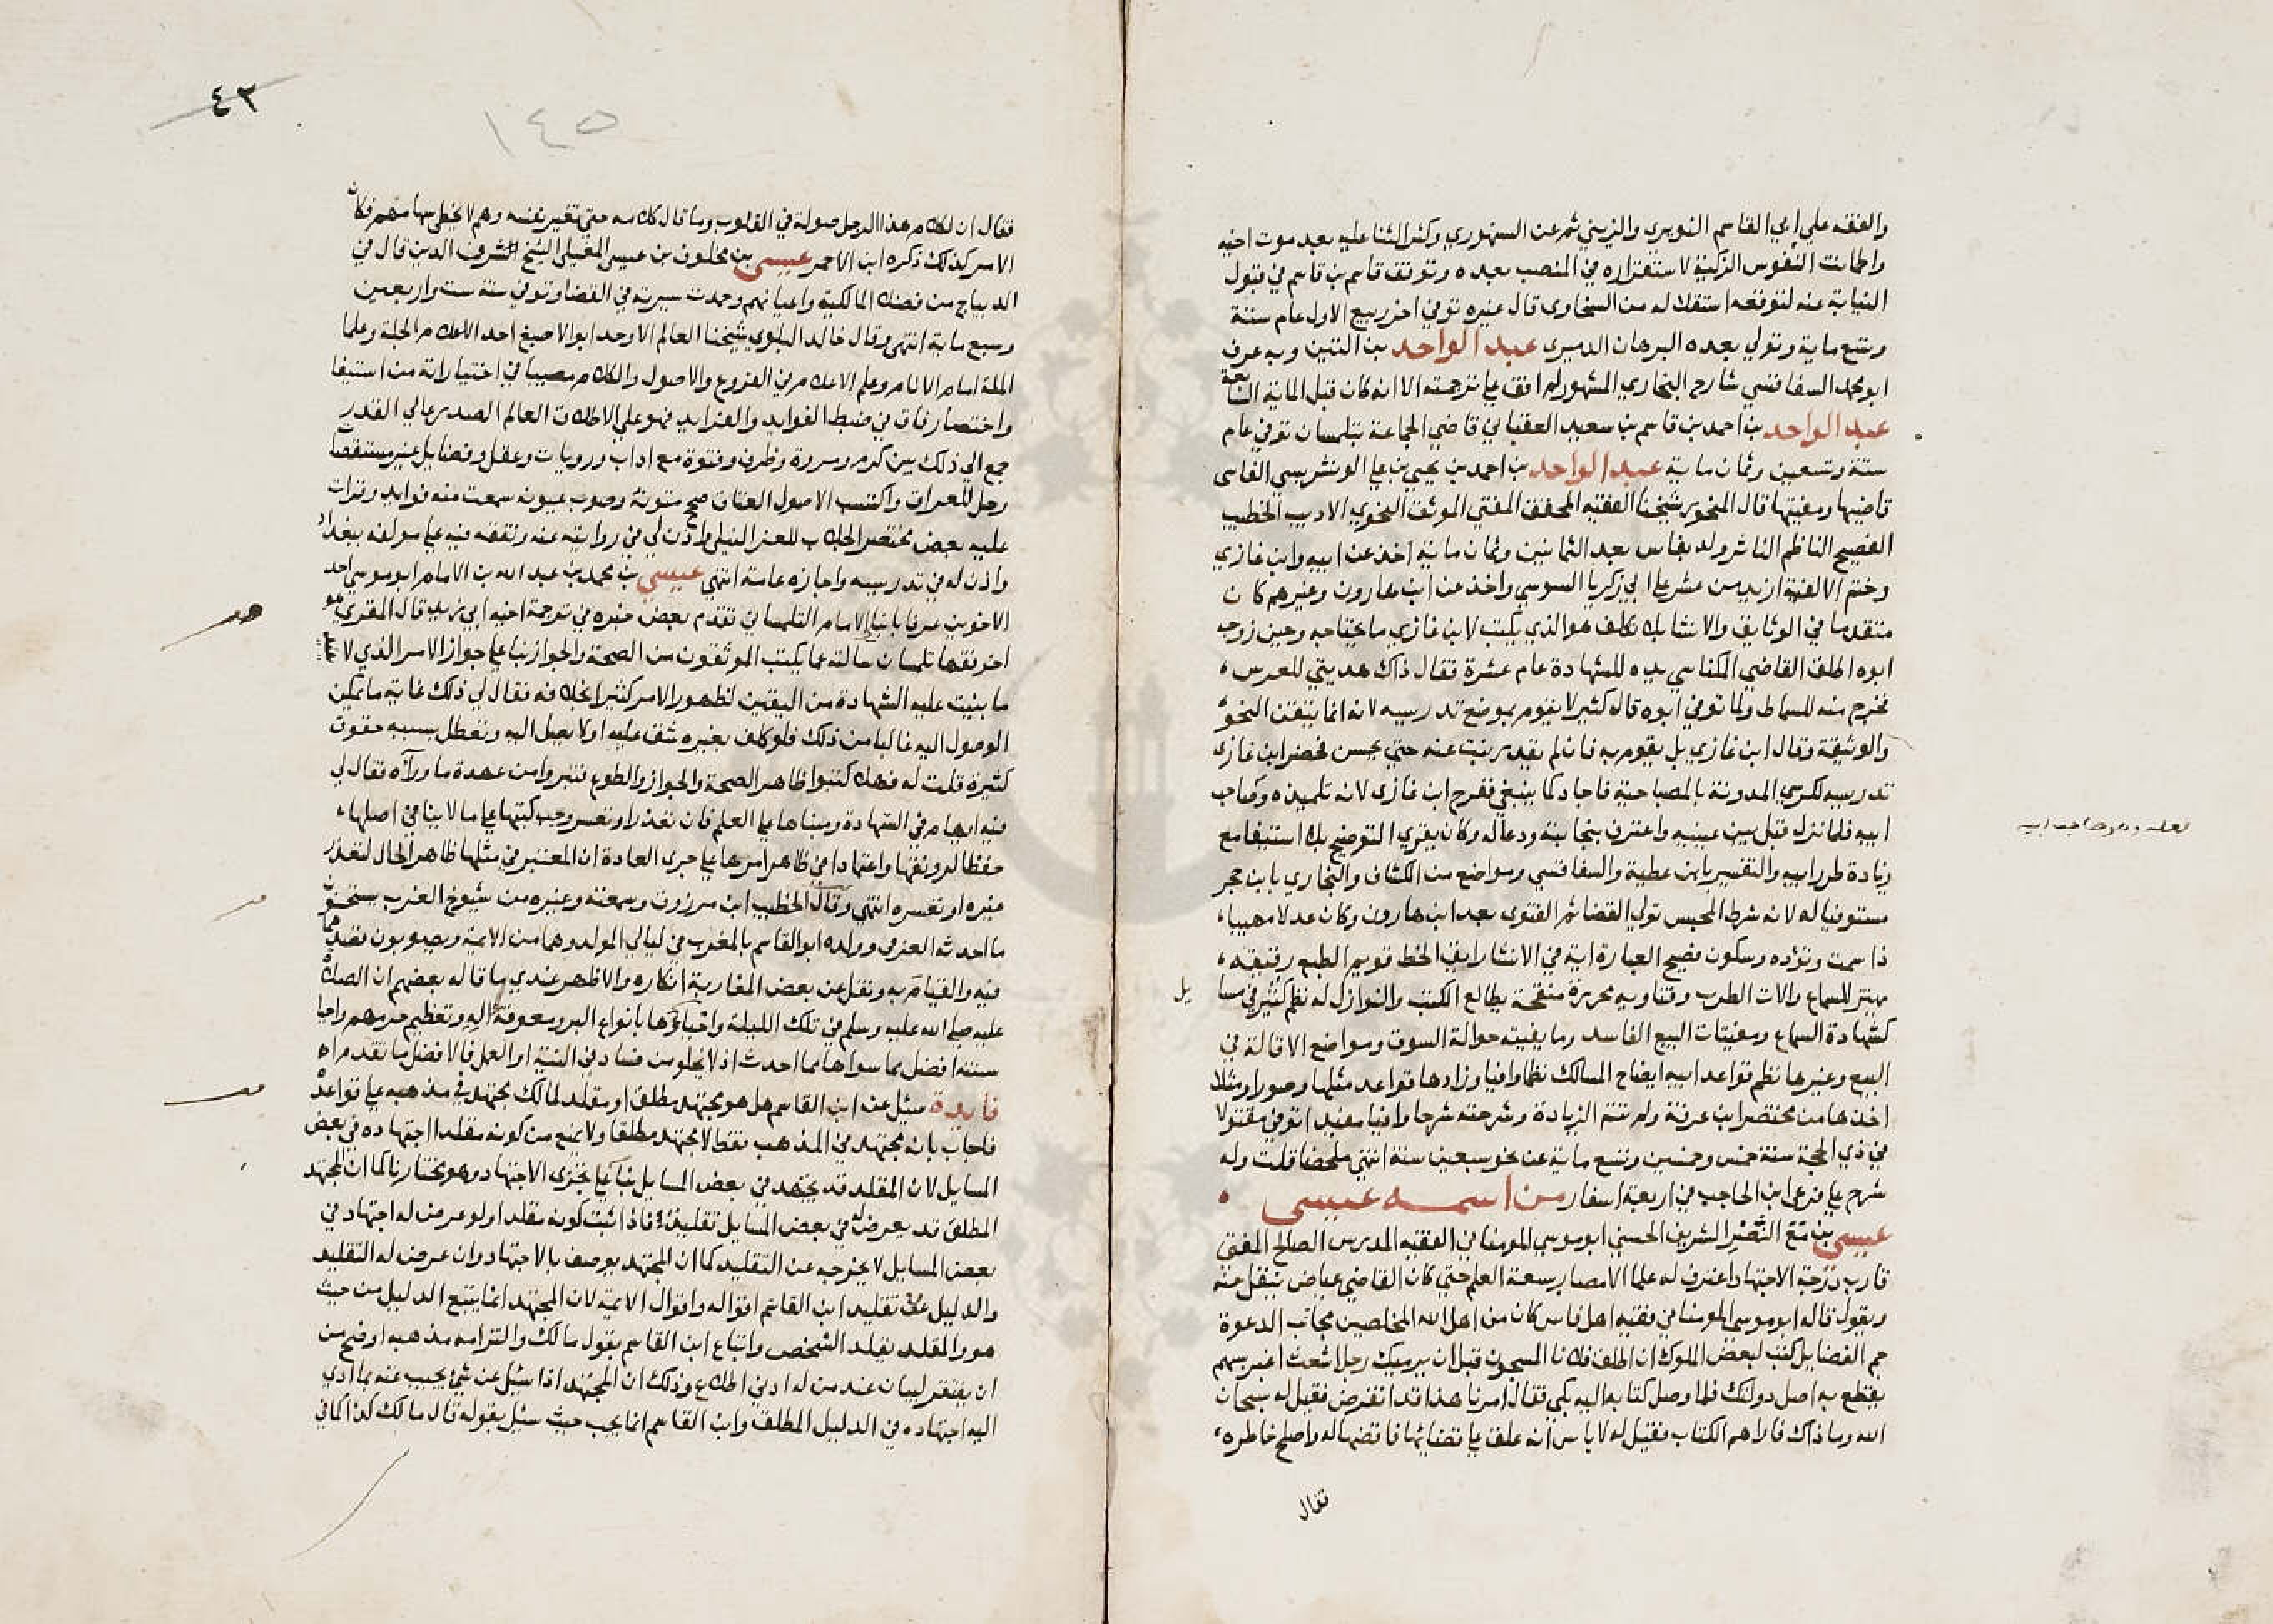 والفقه علي ابي القاسم النويري والزيني ثم عن السنهوري وكثر الثنا عليه بعد موت اخيه
واطمانت النفوس الزكية لاستقراره في المنصب بعده وتوقف قاسم بن قاسم في قبول
النيابة عنه لتوقعه استقلاله من السخاوى قال غيره توفي اخر ربيع الاول عام ستة
وتسع ماية وتولي بعده البرهان الدميرى عبد الواحد بن التين وبه عرف
ابو محمد السفاقسي شارح البخاري المشهور لم اقف علي ترجمته الا انه كان قبل الماية السابعة
عبد الواحد بن احمد بن قاسم بن سعيد العقباني قاضي الجماعة بتلمسان توفي عام
ستة وتسعين وثمان ماية عبد الواحد بن احمد بن يحيي بن علي الونشريسي الفاسى
قاضيها ومفتيها قال المنجور شيخنا الفقيه المحقق المفتي الموثق النحوي الاديب الخطيب
الفصيح الناظم الناثر ولد بفاس بعد الثمانين وثمان ماية اخذ عن ابيه وابن غازي
وختم الالفية ازيد من عشر علي ابي زكريا السوسي واخذ عن ابن هارون وغيرهم كان
متقدما في الوثايق والانشا بلا تكلف هو الذي يكتب لابن غازي ما يحتاجه وحين زوجه
ابوه اطلق القاضي المكناسي يده للشهادة عام عشرة فقال ذاك هديتي للعرس
فخرج منه للسماط ولما توفي ابوه قال كثير لا يقوم بموضع تدريسه لانه انما يتقن النحو
والوثيقة وقال ابن غازي بل يقوم به فان لم يقدر ينب عنه حتي يحسن فحضر ابن غازى
تدريسه لكرسي المدونة بالمصباحية فاجاد كما ينبغي ففرح ابن غازى لانه تلميذه وصاحب
ابيه فلما نزل قبل بين عينيه واعترف بنجابته ودعا له وكان يقري التوضيح بلا استيفا مع
زيادة طرر ابيه والتفسير بابن عطية والسفاقسي ومواضع من الكشاف والبخاري بابن حجر
مستوفيا له لانه شرط المحبس تولي القضا ثم الفتوى بعد ابن هارون وكان عدلا مهيبا
ذا سمت وتؤده وسكون فصيح العبارة اية في الانشا رايق الخط قويم الطبع رقيقه
يهتز للسماع والات الطرب وفتاويه محررة منقحة يطالع الكتب والنوازل له نظم كثير في مسايل
كشهادة السماع ومفيتات البيع الفاسد وما يفيته حوالة السوق ومواضع الاقالة في
البيع وغيرها نظم قواعد ابيه ايضاح المسالك نظما وافيا وزادها قواعد مثلها وصورا ومثلا
اخذها من مختصر ابن عرفة ولم تتم الزيادة وشرحته شرحا وافيا مفيدا توفي مقتولا
في ذي الحجة سنة خمس وخمسين وتسع ماية عن نحو سبعين سنة انتهي ملخصا قلت وله
شرح علي فرعي ابن الحاجب في اربعة اسفار من اسمه عيسى
عيسى بن الشريف الحسني ابو موسي المومناني الفقيه المدرس الصالح المفتي
قارب درجة الاجتهاد اعترف له علما الامصار بسعة العلم حتي كان القاضي عياض ينقل عنه
ويقول قاله ابو موسي المومناني فقيه اهل فاس كان من اهل الله المخلصين مجاب الدعوة
جم الفضايل كتب لبعض الملوك ان اطلق فلانا المسجون قبل ان يرميك رجل اشعث اغبر بسهم
يقطع به اصل دولتك فلما وصل كتابه اليه بكي فقال امرنا هذا قد انقرض فقيل له سبحان
الله وما ذاك فاراهم الكتاب فقيل له لا باس انه علق علي قضايها فاقضها له واصلح خاطره
فقال
لعله وهو صاحب ابيه
٤٣
١٤٥
فقال ان لكلام هذا الرجل صولة في القلوب وما قال كلامه حتي تغير نفسه وهم لا يخطي سهامهم فكان
الامر كذلك ذكره ابن الاحمر عيسى بن مخلوف بن عيسى المغيلي الشيخ الشرف الدين قال في
الديباج من فضلا المالكية واعيانهم وحمدت سيرته في القضا وتوفي سنة ست واربعين
وسبع ماية انتهي وقال خالد البلوي شيخنا العالم الاوحد ابو الاصبغ احد الاعلام الجلة وعلما
الملة امام الانام وعلم الاعلام في الفروع والاصول والكلام مصيبا في اختياراته من استيفا
واختصار فاق في ضبط الفوايد والفرايد فهو علي الاطلاق العالم الصدر عالي القدر
جمع الي ذلك بين كرم ومروة وظرف وفتوة مع اداب وروايات وعقل وفضايل غير مستنقصات
رحل للعراق واكتسب الاصول العتاق صحح متونه وصوب عيونه سمعت منه فوايد وقرات
عليه بعض مختصر الجلاب للعز النيلي واذن لي في روايته عنه وتفقه فيه علي مولفه ببغداد
واذن له في تدريسه واجازه عامة انتهي عيسى بن محمد بن عبد الله بن الامام ابو موسي احد
الاخوين عرفا بابني الامام التلمساني تقدم بعض خبره في ترجمة اخيه ابي زيد قال المقري هو
اخر فقها تلمسان سالته عما يكتب الموثقون من الصحة والجواز بناء علي جواز الامر الذي لا
ما بنيت عليه الشهادة من اليقين لظهور الامر كثيرا بخلافه فقال لي ذلك غاية ما تمكن
الوصول اليه غالبا من ذلك فلو كلف بغيره شق عليه او لا يصل اليه وتعطل بسببه حقوق
كثيرة قلت له فهلا كتبوا ظاهر الصحة والجواز والطوع فتبروا من عهدة ما وراه فقال لي
فيه ايهام في الشهادة ومبناها علي العلم فان تعذر او تعسر وجب كتبها علي ما لا ينافي اصلها
حفظا لرونقها واعتمادا في ظاهر امرها علي جرى العادة ان المعتبر في مثلها ظاهر الحال لتعذر
غيره او تعسره انتهي وقال الخطيب ابن مرزوق وسمعته وغيره من شيوخ الغرب يستحسنون
ما احدثه العزفي وولده ابو القاسم بالمغرب في ليالي المولد وهما من الايمة ويصوبون قصدهما
فيه والقيام به ونقل عن بعض المغاربة انكاره والاظهر عندي ما قاله بعضهم ان الصلاة
عليه صلي الله عليه وسلم في تلك الليلة واحياؤها بانواع البر ومعونة اله وتعظيم حرمهم واحيا
سنته افضل مما سواها مما احدث اذ لا يخلو من فساد في النية او العمل فالافضل ما تقدم اه
فايدة سيل عن ابن القاسم هل هو مجتهد مطلق او مقلد لمالك مجتهد في مذهبه علي قواعده
فاجاب بانه مجتهد في المذهب فقط لا مجتهد مطلقا ولا يمنع من كونه مقلدا اجتهاده في بعض
المسايل لان المقلد قد يجتهد في بعض المسايل بناء علي تجزى الاجتهاد وهو مختارنا كما ان المجتهد
المطلق قد يعرض له في بعض المسايل تقليد فاذا ثبت كونه مقلدا ولو عرض له اجتهاد في
بعض المسايل لا يخرجه عن التقليد كما ان المجتهد يوصف بالاجتهاد وان عرض له التقليد
والدليل علي تقليد ابن القاسم اقواله واقوال الايمة لان المجتهد انما يتبع الدليل من حيث
هو والمقلد يقلد الشخص واتباع ابن القاسم بقول مالك والتزامه مذهبه اوضح من
ان يفتقر لبيان عند من له ادني اطلاع وذلك ان المجتهد اذا سيل عن شئ يجيب عنه بما ادي
اليه اجتهاده في الدليل المطلق وابن القاسم انما يجب حيث سيل بقوله قال مالك كذا كافي